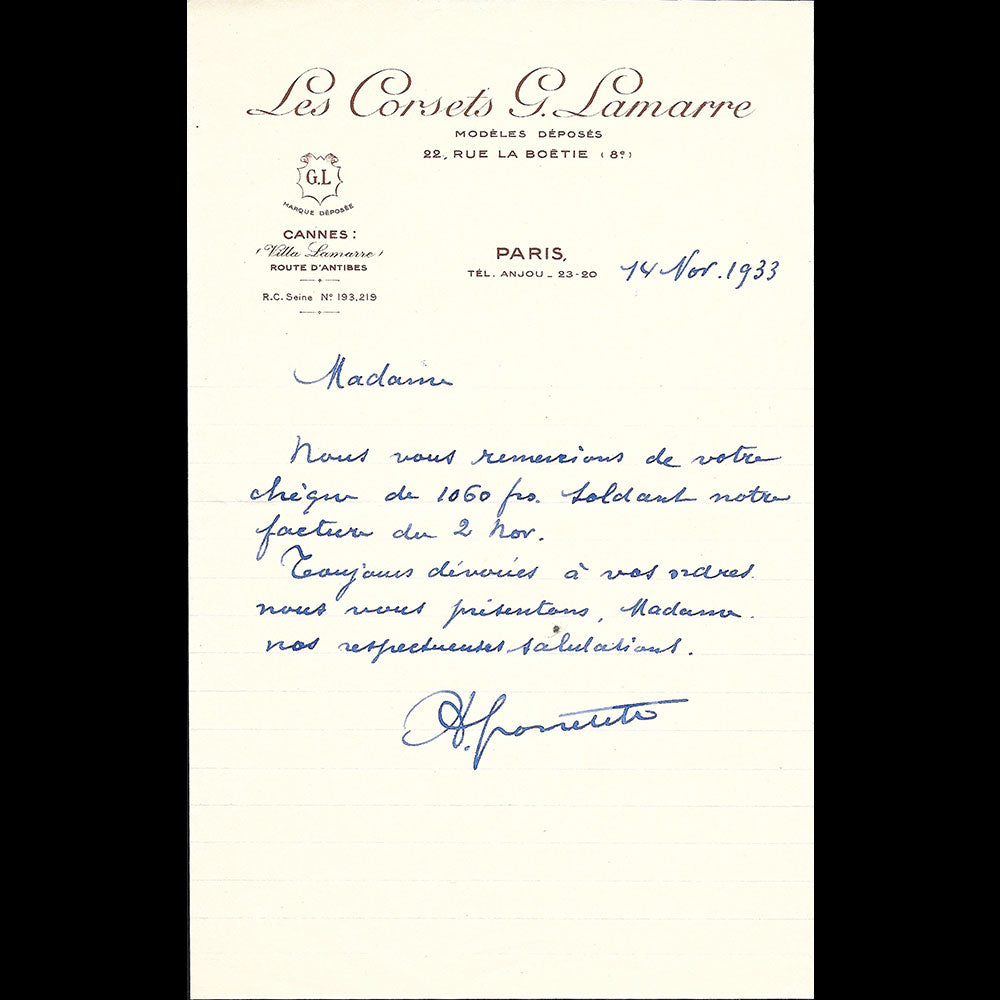 Les Corsets G. Lamarre
MODÈLES DÉPOSÉS
22, RUE LA BOËTIE (8e)
G.L
MARQUE DÉPOSÉE
CANNES :
(Villa Lamarre)
ROUTE D'ANTIBES
R.C. Seine No 193.219
PARIS,
TÉL. ANJOU _ 23-20
14 Nov. 1933
Madame
Nous vous remercions de votre
chèque de 1060 frs. soldant notre
facture du 2 Nov.
Toujours dévoués à vos ordres
nous vous présentons, Madame.
nos respectueuses salutations.